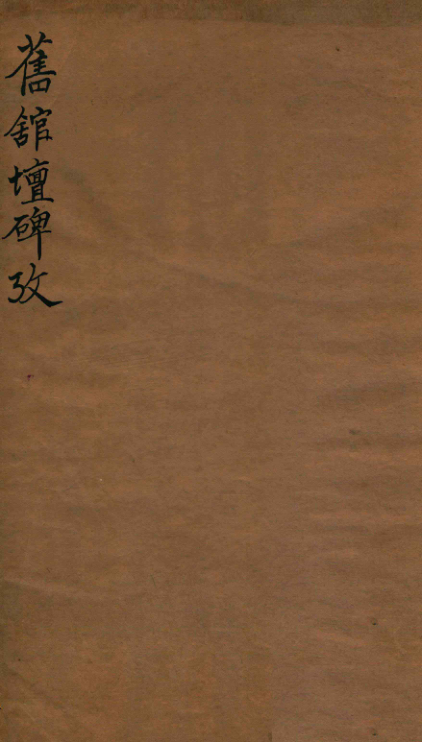 舊舘壇碑攷